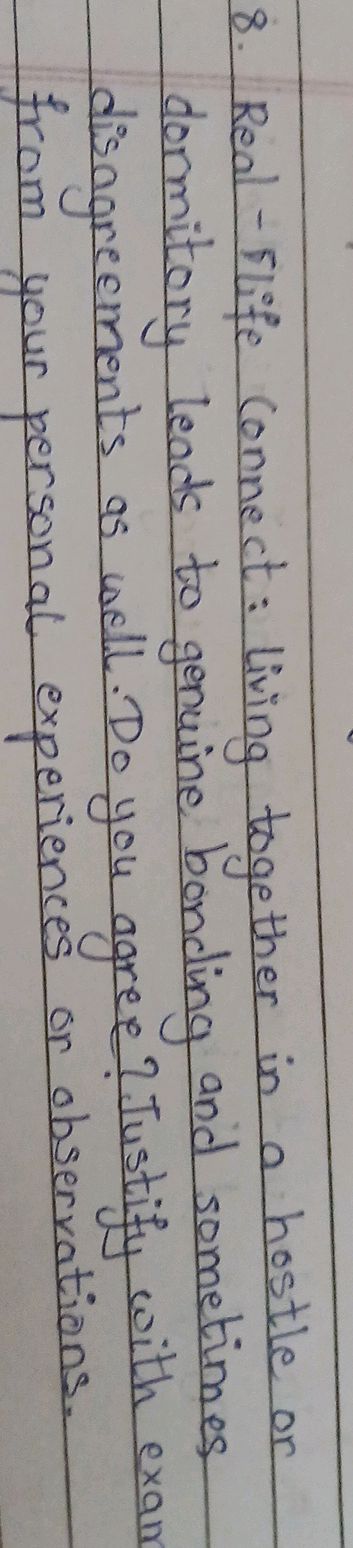 8. Real-Flife Connect: Living together in a hostle or
dormitory leads to genuine bonding and sometimes
disagreements as well. Do you agree? Justify with exam
from your personal experiences or observations.